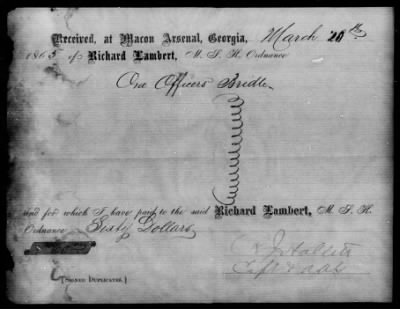 Received, at Macon Arsenal, Georgia, March 20th
1865 of Richard Lambert, M. S. K. Ordnance
One Officers Bridle
and for which I have paid to the said Richard Lambert, M. S. K.
Ordnance Sixty Dollars
[SIGNED DUPLICATES.]